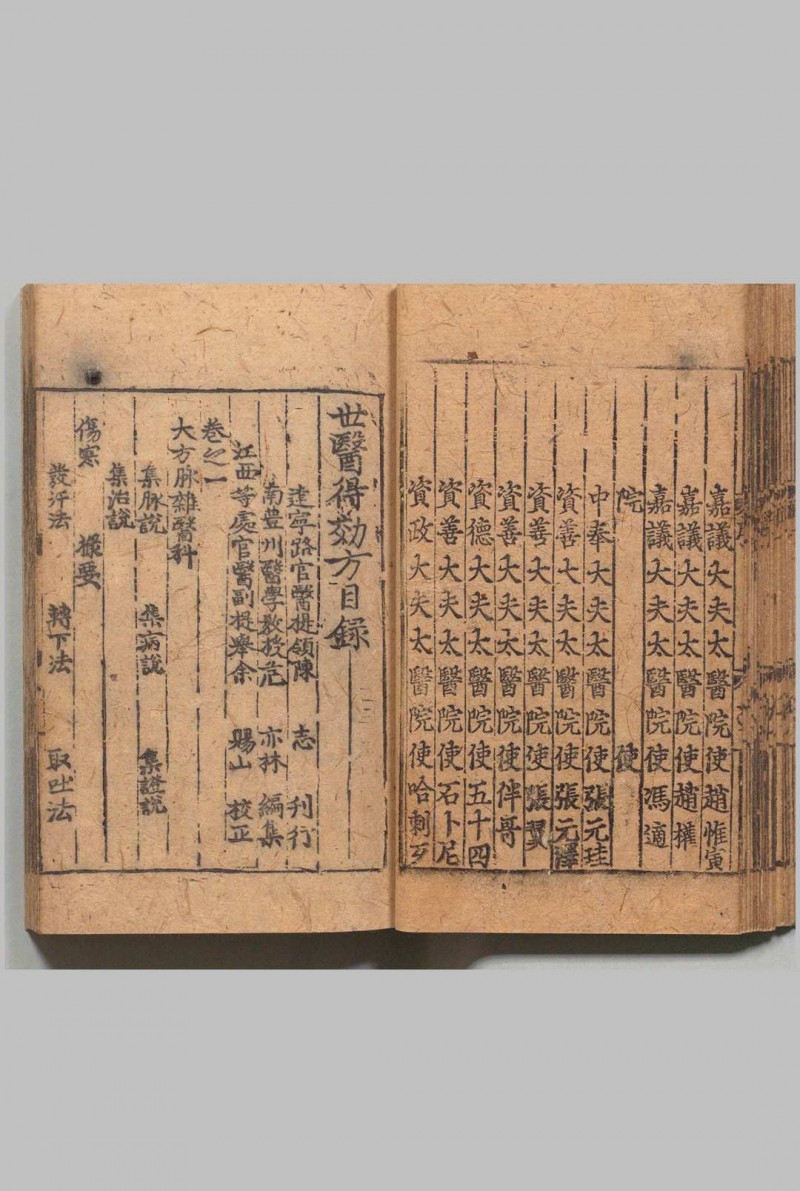 嘉議大夫太醫院使趙惟寅
嘉議大夫太醫院使趙權
嘉議大夫太醫院使馮適
院使
中奉大夫太醫院使張元珪
資善大夫太醫院使張元澤
資善大夫太醫院使張翼
資善大夫太醫院使伴哥
資德大夫太醫院使五十四
資善大夫太醫院使石卜尼
資政大夫太醫院使哈剌歹
世醫得効方目録
建寧路官醫提領陳 志 刊行
南豊州醫學教授危 亦林 編集
江西等處官醫副提舉余 賜山 校正
卷之一
大方脉雜醫科
集脉說 集病說 集證說
集治說
傷寒 撮要
發汗法 轉下法 取吐法